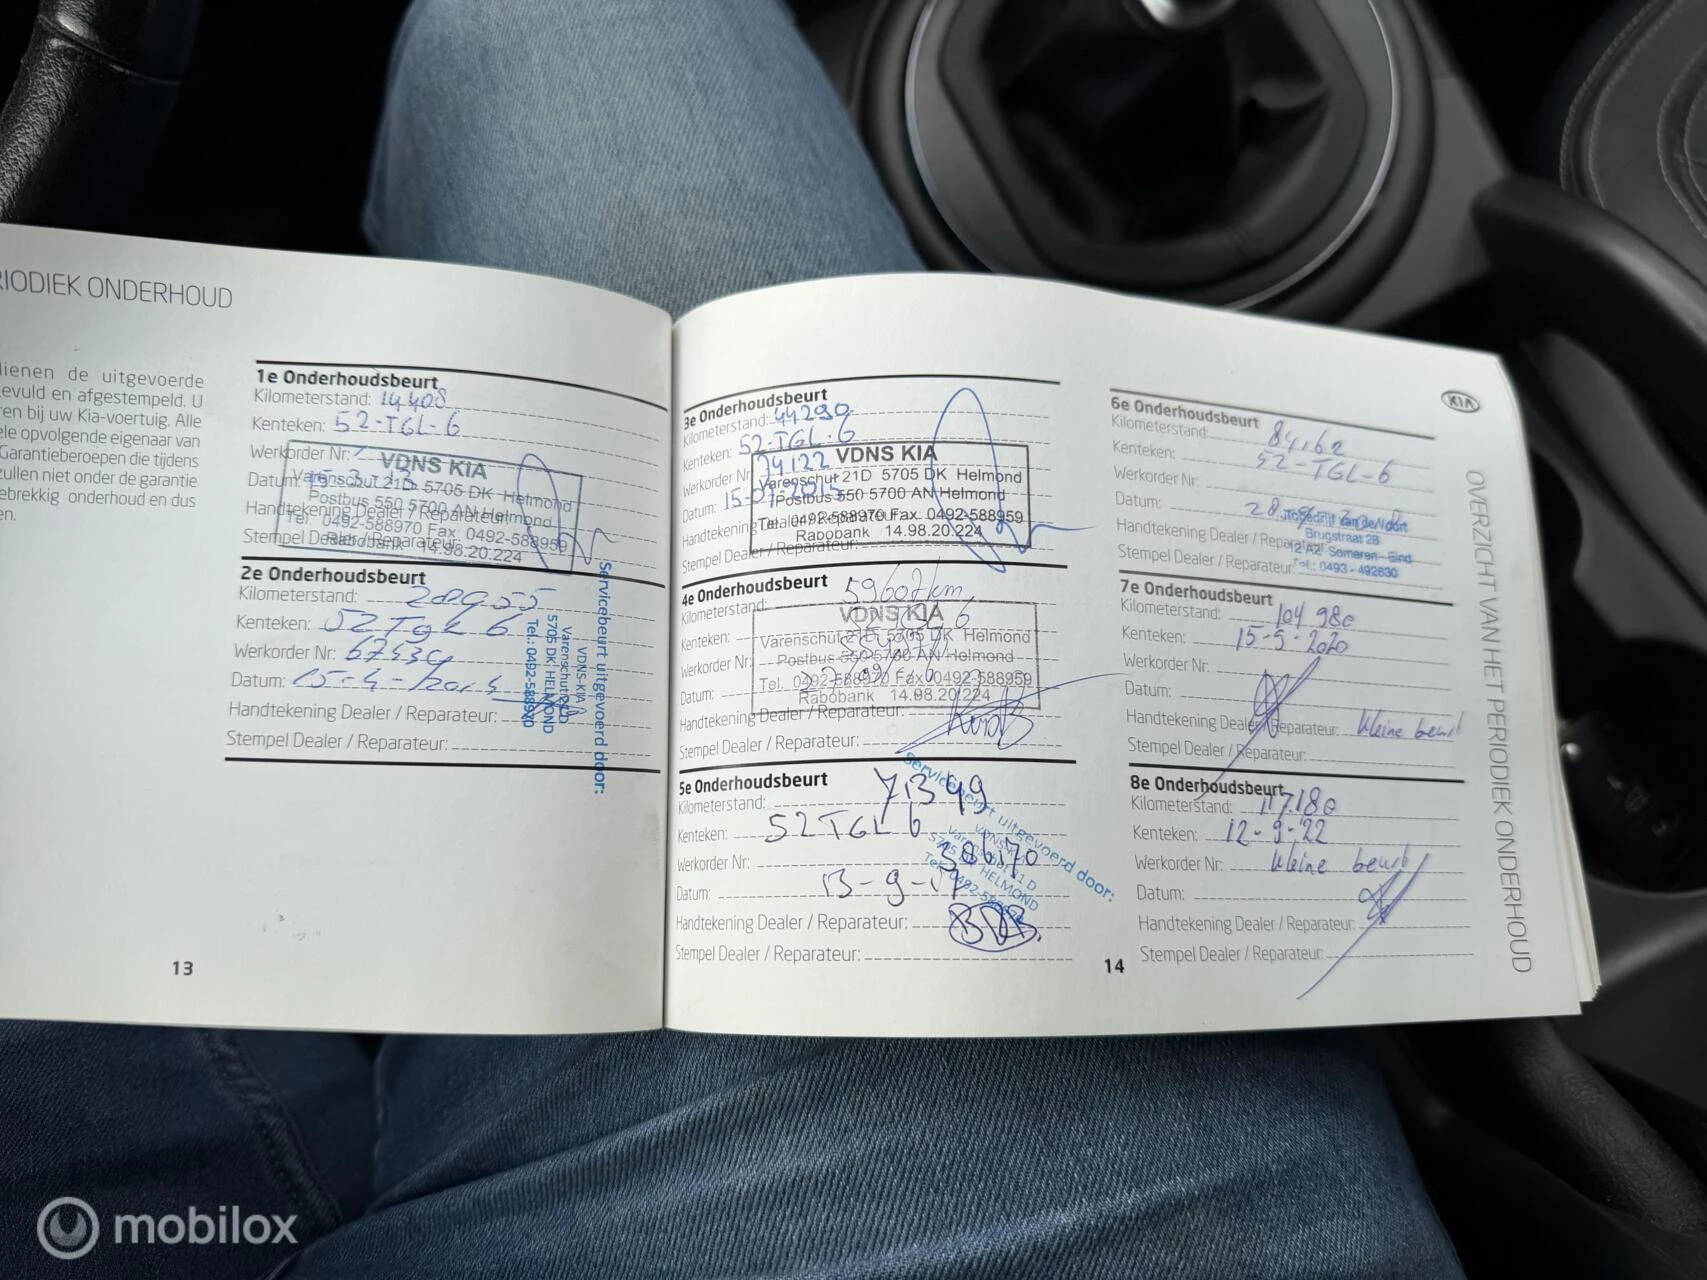 RIODIEK ONDERHOUD
dienen de uitgevoerde
evuld en afgestempeld. U
ren bij uw Kia-voertuig. Alle
ele opvolgende eigenaar van
Garantieberoepen die tijdens
zullen niet onder de garantie
ebrekkig onderhoud en dus
en.
1e Onderhoudsbeurt
Kilometerstand: 14408
Kenteken: 52-TGL-6
Werkorder Nr:
Datum:
Handtekening Dealer / Reparateur:
Stempel Dealer / Reparateur:
VDNS KIA
Varenschut 21D 5705 DK Helmond
Postbus 550 5700 AN Helmond
Tel. 0492-588970 Fax 0492-588959
Rabobank 14.98.20.224
2e Onderhoudsbeurt
Kilometerstand:
Kenteken: 52 TGL 6
Werkorder Nr:
Datum: 15-4-2014
Handtekening Dealer / Reparateur:
Stempel Dealer / Reparateur:
Servicebeurt uitgevoerd door:
VDNS-KIA
Varenschut 21 D
5705 DK HELMOND
Tel.: 0492-588970
13
3e Onderhoudsbeurt
Kilometerstand: 44290
Kenteken: 52-TGL-6
Werkorder Nr: 74122
Datum: 15-07-2015
Handtekening Dealer / Reparateur:
Stempel Dealer / Reparateur:
VDNS KIA
Varenschut 21D 5705 DK Helmond
Postbus 550 5700 AN Helmond
Tel. 0492-588970 Fax. 0492-588959
Rabobank 14.98.20.224
4e Onderhoudsbeurt
Kilometerstand: 59607km
Kenteken:
Werkorder Nr:
Datum:
Handtekening Dealer / Reparateur:
Stempel Dealer / Reparateur:
VDNS KIA
Varenschut 21D 5705 DK Helmond
Postbus 550 5700 AN Helmond
Tel. 0492-588970 Fax 0492-588959
Rabobank 14.98.20.224
5e Onderhoudsbeurt
Kilometerstand: 71349
Kenteken: 52 TGL 6
Werkorder Nr:
Datum: 13-9-17
Handtekening Dealer / Reparateur:
Stempel Dealer / Reparateur:
Servicebeurt uitgevoerd door:
VDNS-KIA
Varenschut 21 D
5705 DK HELMOND
Tel.: 0492-588970
14
KIA
6e Onderhoudsbeurt
Kilometerstand: 84162
Kenteken: 52-TGL-6
Werkorder Nr:
Datum:
Handtekening Dealer / Reparateur:
Stempel Dealer / Reparateur:
Autobedrijf van de Voort
Brugstraat 28
12 AZ Someren - Eind
Tel.: 0493 - 492630
7e Onderhoudsbeurt
Kilometerstand: 104980
Kenteken: 15-5-2020
Werkorder Nr:
Datum:
Handtekening Dealer / Reparateur: kleine beurt
Stempel Dealer / Reparateur:
8e Onderhoudsbeurt
Kilometerstand: 117.180
Kenteken: 12-9-'22
Werkorder Nr: kleine beurt
Datum:
Handtekening Dealer / Reparateur:
Stempel Dealer / Reparateur:
OVERZICHT VAN HET PERIODIEK ONDERHOUD
mobilox